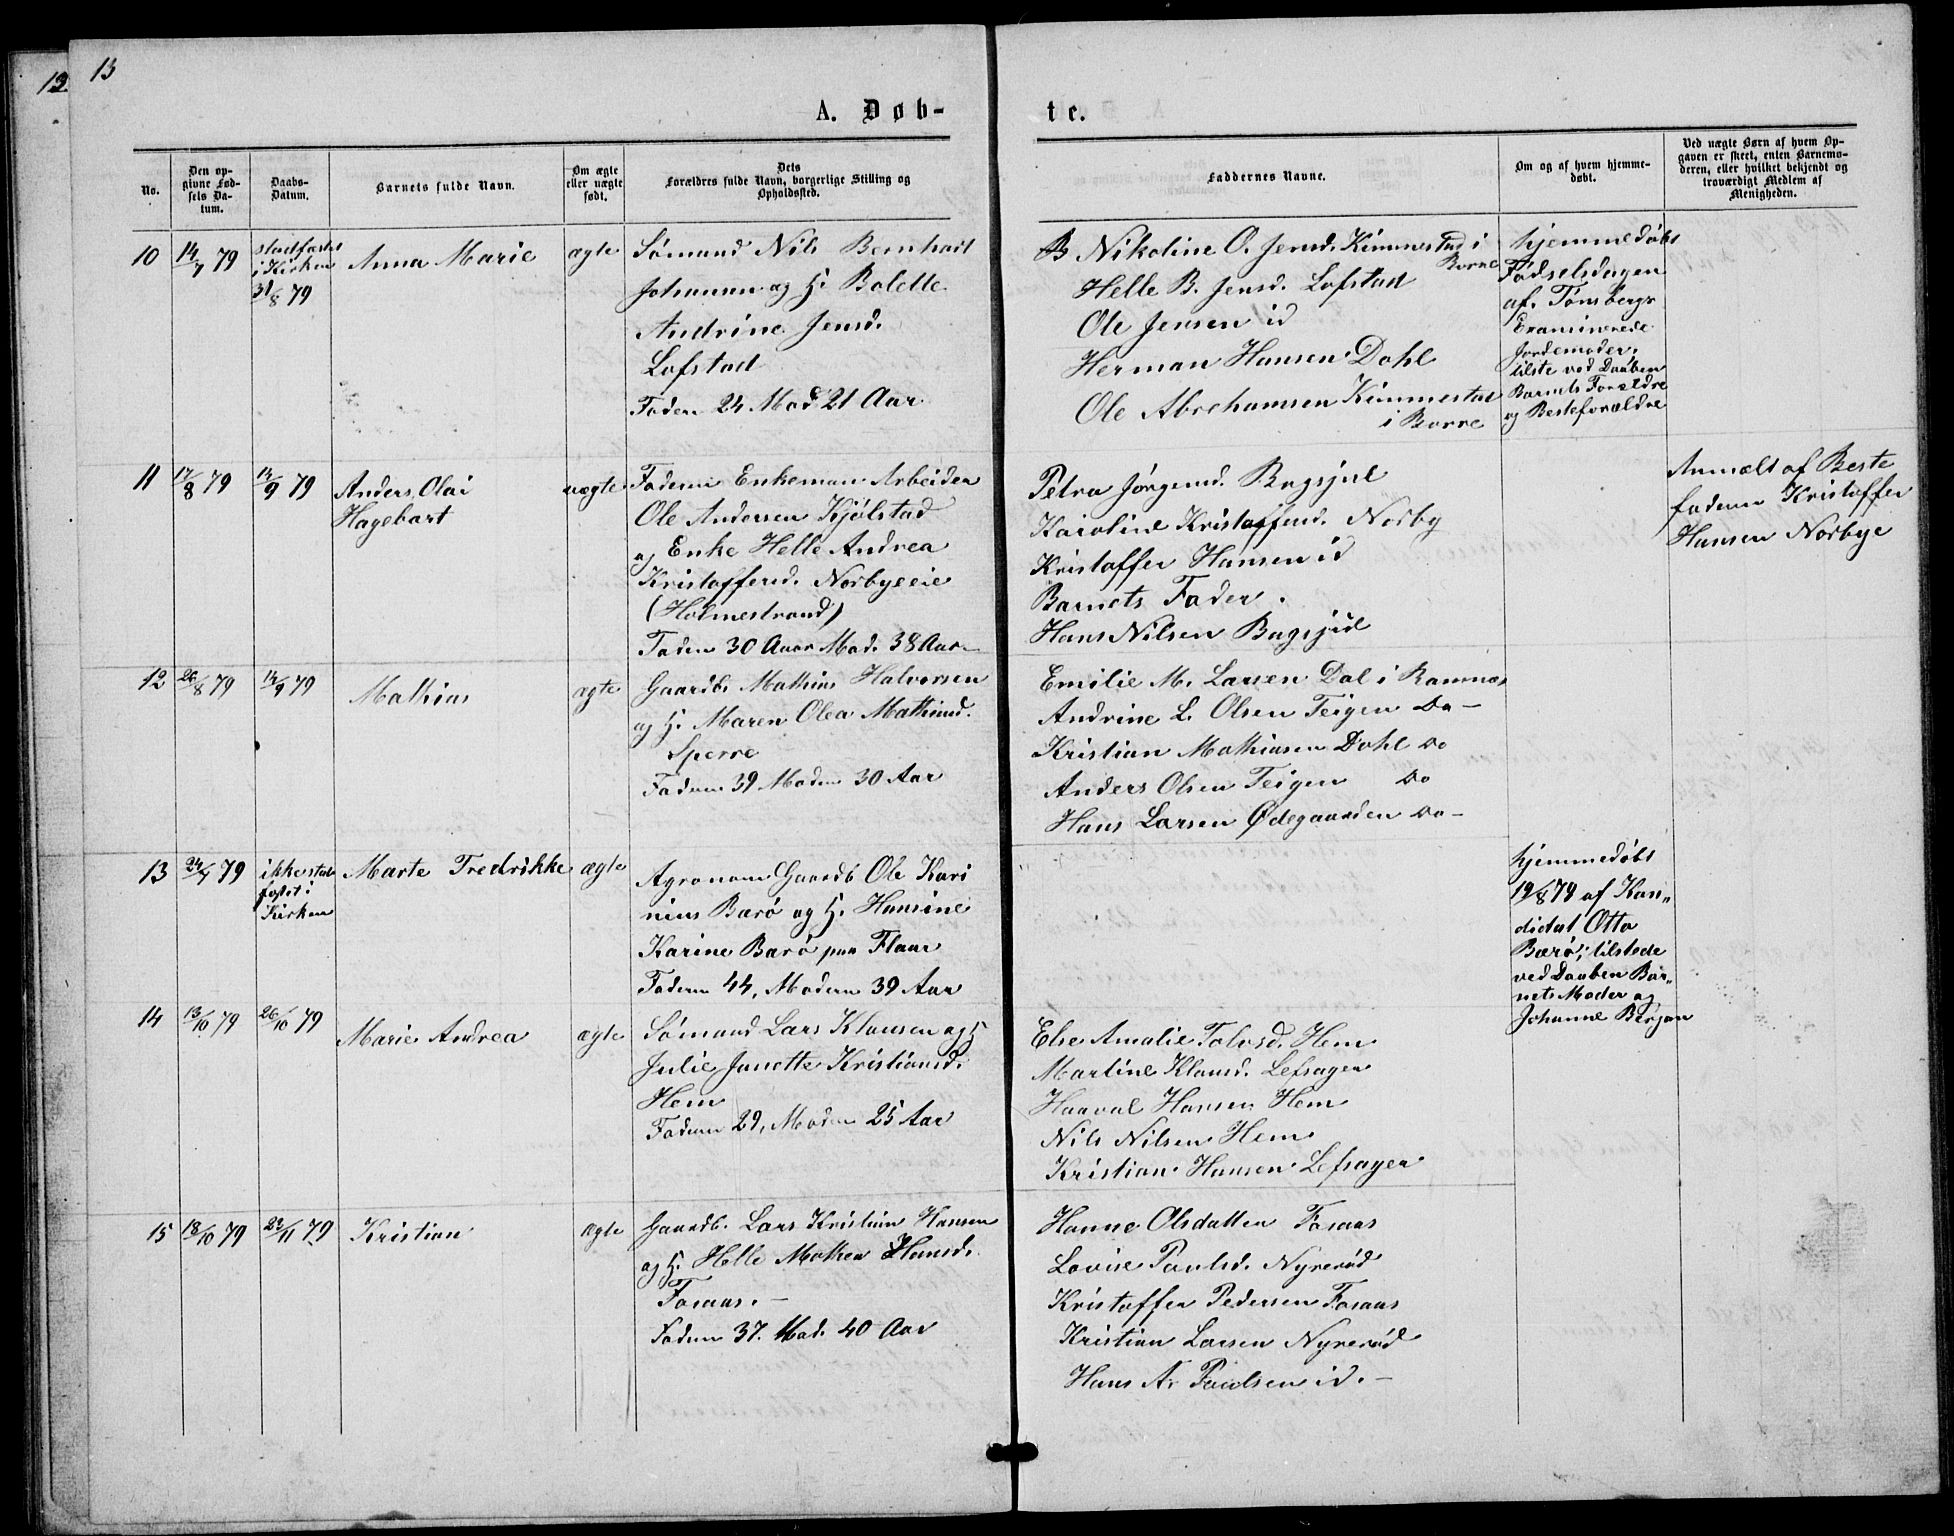 12
13
A. Døb-
te.
No.
Den op-
givne Fød-
sels Da-
tum.
Daabs-
Datum.
Barnets fulde Navn.
Om ægte
eller uægte
født.
Dets
Forældres fulde Navn, borgerlige Stilling og
Opholdssted.
Faddernes Navne.
Om og af hvem hjemme-
døbt.
Ved uægte Børn af hvem Op-
gaven er skeet, enten Barnemo-
deren, eller hvilket bekjendt og
troværdigt Medlem af
Menigheden.
10
14/7 79
stadfæstet
i Kirken
31/8 79
Anna Marie
ægte
Sømand Nils Bernhart
Johannsen og H. Bolette
Andrine Jensd.
Lofstad
Faderen 24 Mod 21 Aar
B Nikoline O. Jensd. Kimmestad i
Borre
Helle B. Jensd. Lofstad
Ole Jensen id
Herman Hansen Dahl
Ole Abrahamsen Kimmestad
i Borre
hjemmedøbt
Fødselsdagen
af Tønsbergs
Examinerede
Jordemoder,
tilste ved Daaben
Barnets Forældre
og Besteforældre
11
17/8 79
14/9 79
Anders Olai
Hagebart
uægte
Faderen Enkemann Arbeider
Ole Andersen Kjølstad
og Enke Helle Andrea
Kristoffersd. Norbyeeie
(Holmestrand)
Faderen 30 Aar Mod. 38 Aar
Petra Jørgensd. Bagsjul
Karoline Kristoffersd. Norby
Kristoffer Hansen id
Barnets Fader.
Hans Nilsen Bagsjul
Anmelt af Beste
faderen Kristoffer
Hansen Norbye
12
26/8 79
14/9 79
Mathias
ægte
Gaardb. Mathias Halvorsen
og H. Maren Olea Mathiasd.
Sperre
Faderen 39 Moderen 30 Aar
Emilie M. Larsen Dal i Ramnæs
Andrine L. Olsen Teigen Do-
Kristian Mathiasen Dahl Do
Anders Olsen Teigen Do
Hans Larsen Ødegaarden Do-
13
24/7 79
ikke stad
fæstet i
Kirken
Marte Fredrikke
ægte
Agronom Gaardb Ole Kari
nius Barø og H. Hansine
Karine Barø paa Flaar
Faderen 44, Moderen 39 Aar
hjemmedøbt
19/8 79 af Kan-
didat Otto
Bærø; tilstede
ved Daaben Bar-
nets Moder og
Johanne Bergan
14
13/10 79
26/10 79
Marie Andrea
ægte
Sømand Lars Klausen og H
Julie Janette Kristiansd.
Hem
Faderen 29, Moderen 25 Aar
Else Amalie Tolvsd. Hem
Martine Klausd. Lefsager
Haaval Hansen Hem
Nils Nilsen Hem
Kristian Hansen Lefsager
15
18/10 79
23/11 79
Kristian
ægte
Gaardb. Lars Kristian Hansen
og H. Helle Mathea Hansd.
Fosaas.-
Faderen 37. Mod. 40 Aar
Hanne Olsdatter Fosaas
Lovise Paulsd. Nyrerød
Kristoffer Pedersen Fosaas
Kristian Larsen Nyrerød
Hans A. Paulsen id.-